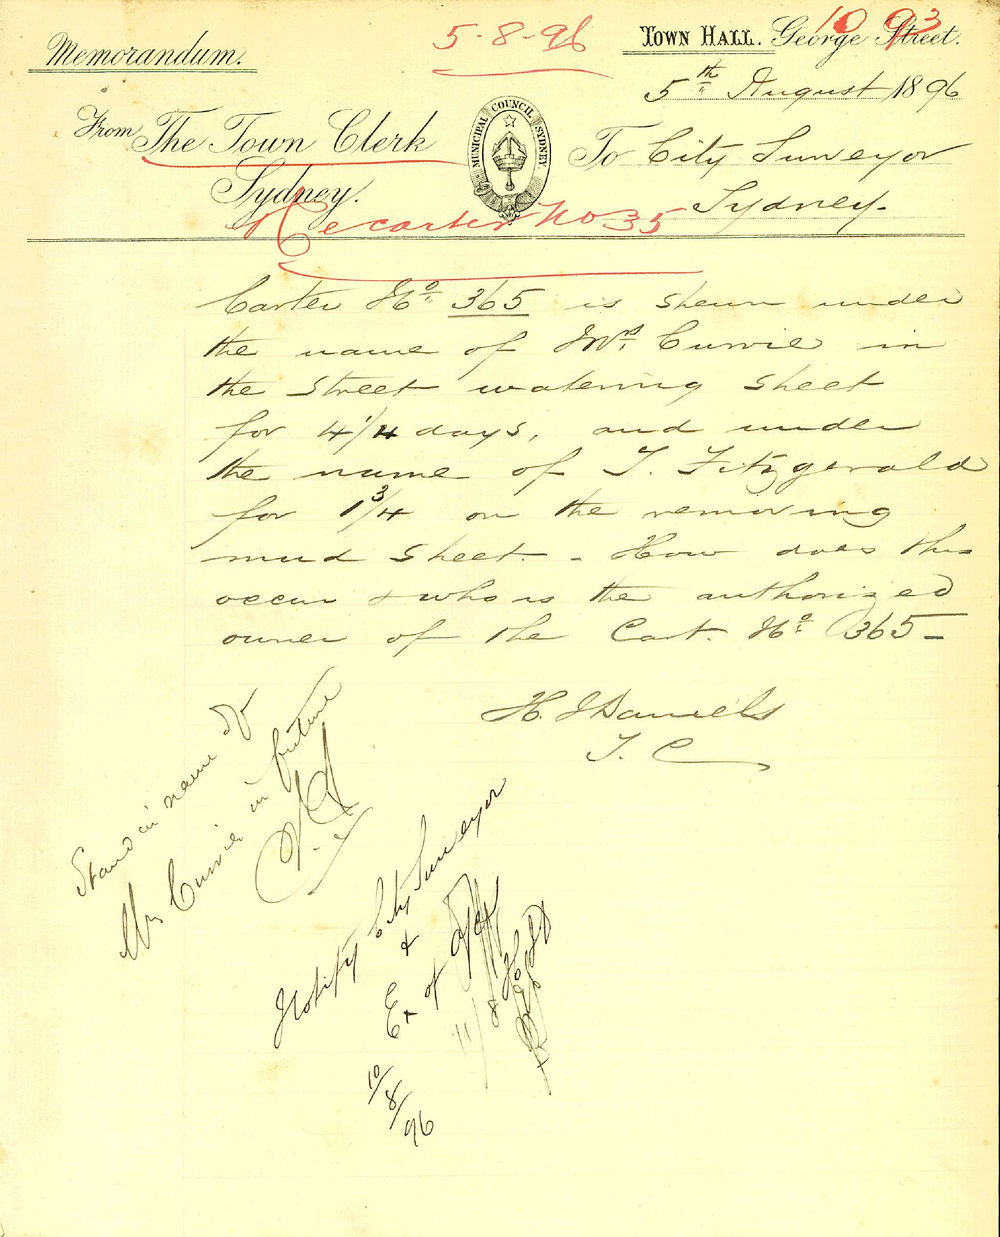 Memorandum.
5-8-96
10 93
TOWN HALL. George Street.
5th August 1896
From The Town Clerk
Sydney.
MUNICIPAL COUNCIL SYDNEY
To City Surveyor
Sydney.
Re carter No 35
Carter No 365 is shewn under
the name of Mrs Currie in
the street watering sheet
for 4 1/4 days, and under
the name of T. Fitzgerald
for 1 3/4 on the removing
mud sheet. - How does this
occur & who is the authorized
owner of the Cart. No 365 -
H. J Daniels
T. C
Stand in name of
Mrs Currie in future
Notify City Surveyor
&
Ex of
10/8/96
11/8